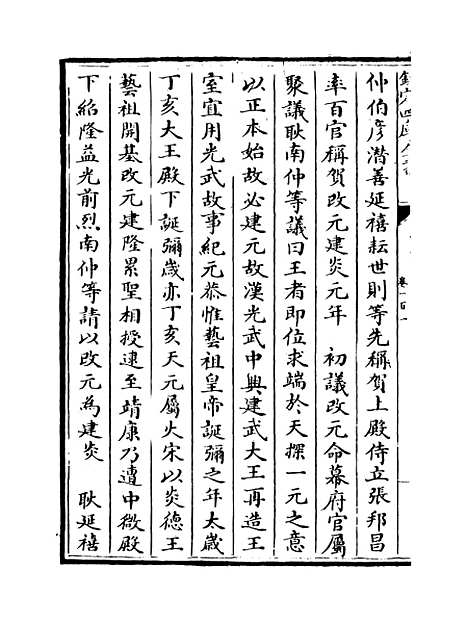 欽定四庫全書
卷一百一
仲伯彦潛善延禧耘世則等先稱賀上殿侍立張邦昌
率百官稱賀改元建炎元年　初議改元命幕府官屬
聚議耿南仲等議曰王者即位求端於天探一元之意
以正本始故必建元故漢光武中興建武大王再造王
室宜用光武故事紀元恭惟藝祖皇帝誕彌之年太歲
丁亥大王殿下誕彌歲亦丁亥天元屬火宋以炎德王
藝祖開基改元建隆累聖相授逮至靖康乃遭中微殿
下紹隆益光前烈南仲等請以改元為建炎　耿延禧